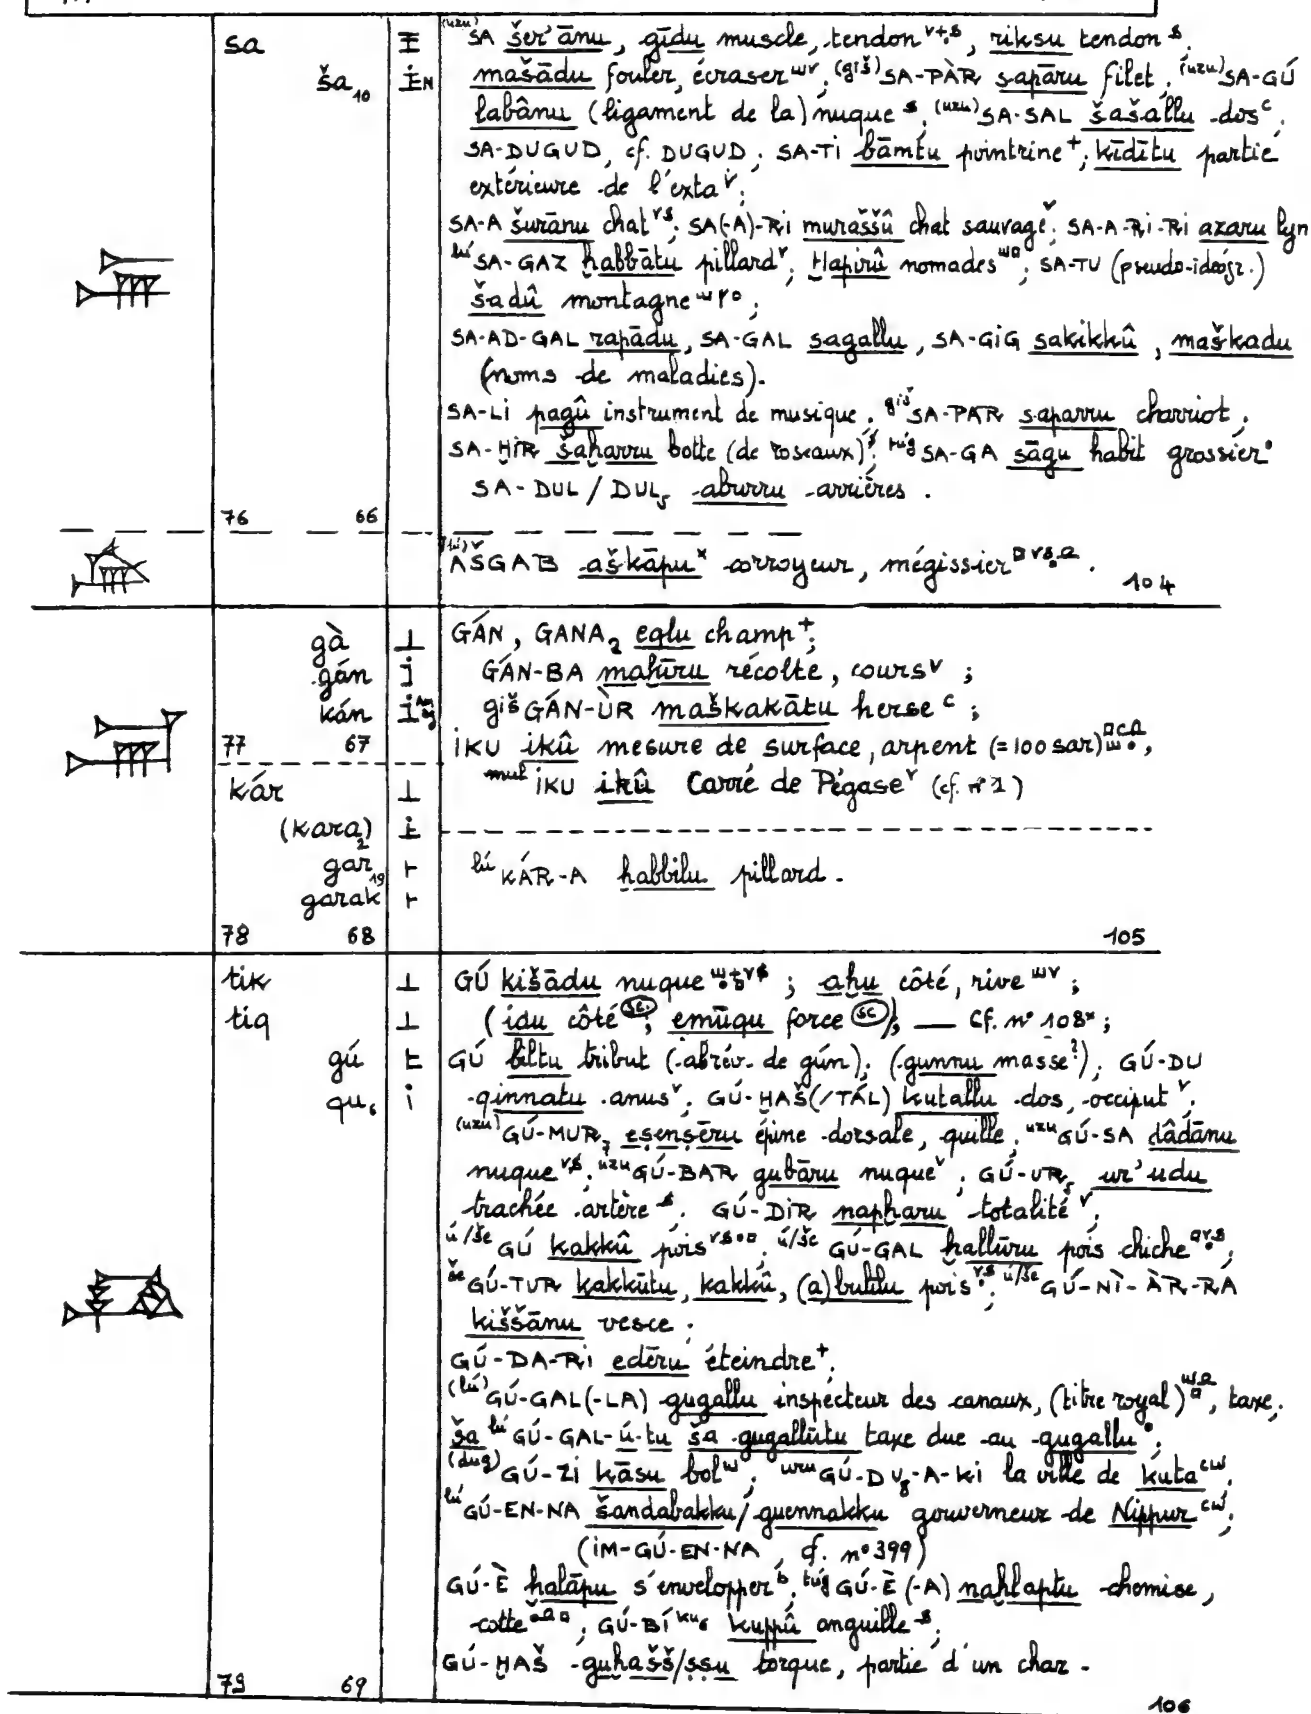 sa
ša₁₀
(uzu) SA šer'ānu, gīdu muscle, tendon, riksu tendon
mašādu fouler, écraser ; (giš) SA-PÀR sapāru filet . (uzu) SA-GÚ
labânu (ligament de la) nuque ; (uzu) SA-SAL šašallu dos ;
SA-DUGUD, cf. DUGUD ; SA-TI bāmtu pointrine ; kīdītu partie
extérieure de l'exta ;
SA-A šurānu chat ; SA(-A)-Ri muraššû chat sauvage ; SA-A-Ri-Ri azaru lyn
lú SA-GAZ ḫabbātu pillard ; Ḫapirû nomades ; SA-TU (pseudo-idéogr.)
šadû montagne ;
SA-AD-GAL rapādu, SA-GAL sagallu, SA-GIG sakikkû, maškadu
(noms de maladies).
SA-LI pagû instrument de musique ; giš SA-PAR saparru charriot ;
SA-ḪIR šaḫarru botte (de roseaux) ; túg SA-GA sāgu habit grossier
SA-DUL / DUL₅ aburru arrières .
76 66
(lú) AŠGAB aškāpu corroyeur, mégissier .
104
gà
gán
kán
77 67
GÁN, GANA₂ eqlu champ ;
GÁN-BA maḫīru récolte, cours ;
giš GÁN-ÙR maškakātu herse ;
IKU ikû mesure de surface, arpent (= 100 sar) ,
mul IKU ikû Carré de Pégase (cf. n° 1)
kár
(kara₂)
gar₁₉
garak
lú KÁR-A ḫabbilu pillard .
78 68
105
tik
tiq
gú
qu₆
GÚ kišādu nuque ; aḫu côté, rive ;
(idu côté ; emūqu force ) ; — Cf. n° 108* ;
GÚ biltu tribut (abrév. de gún) ; (gunnu masse?) ; GÚ-DU
qinnatu anus ; GÚ-ḪAŠ(/TÁL) kutallu dos, occiput ;
(uzu) GÚ-MUR₇ eṣenṣēru épine dorsale, quille ; uzu GÚ-SA dâdānu
nuque ; uzu GÚ-BAR gubāru nuque ; GÚ-UR₅ ur'udu
trachée artère . GÚ-DIR napḫaru totalité ;
ú/še GÚ kakkû pois ; ú/še GÚ-GAL ḫallūru pois chiche ;
še GÚ-TUR kakkūtu, kakkû, (a)buldu pois ; ú/še GÚ-NÌ-ÀR-RA
kiššānu vesce .
GÚ-DA-Ri edēru éteindre ;
(lú) GÚ-GAL(-LA) gugallu inspecteur des canaux, (titre royal) , taxe ;
ša lú GÚ-GAL-ú-tu ša gugallūtu taxe due au gugallu ;
(dug) GÚ-ZI kāsu bol ; uru GÚ-DU₈-A-KI la ville de kuta ;
lú GÚ-EN-NA šandabakku/guennakku gouverneur de Nippur ;
(IM-GÚ-EN-NA, cf. n° 399)
GÚ-È ḫalāpu s'envelopper ; túg GÚ-È (-A) naḫlaptu chemise,
cotte ; GÚ-BÍ ku₆ kuppû anguille ;
GÚ-ḪAŠ guḫašš/ṣṣu torque, partie d'un char .
79 69
106